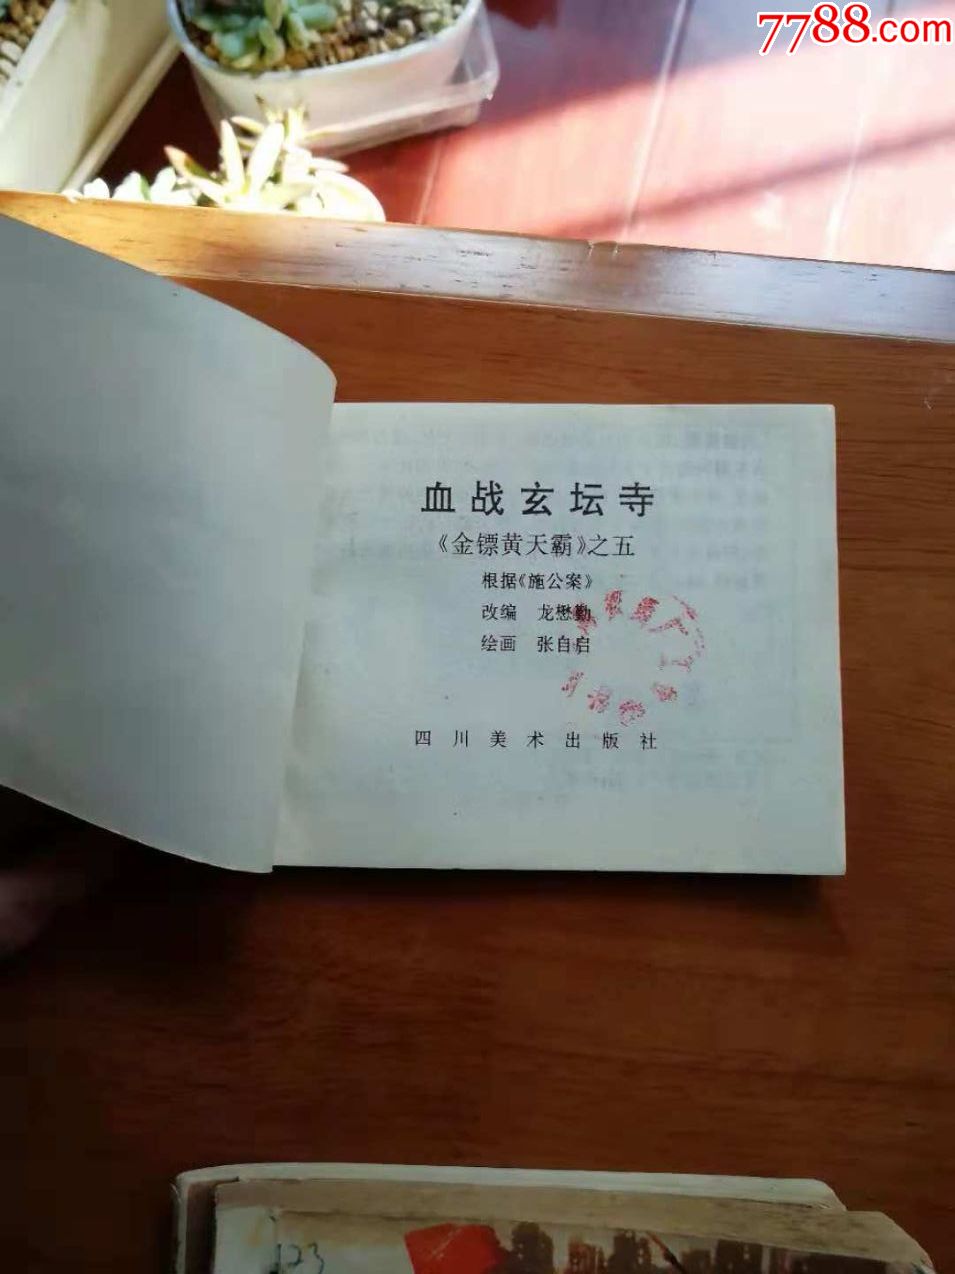 7788.com
血战玄坛寺
《金镖黄天霸》之五
根据《施公案》
改编 龙懋勤
绘画 张自启
四川美术出版社
123